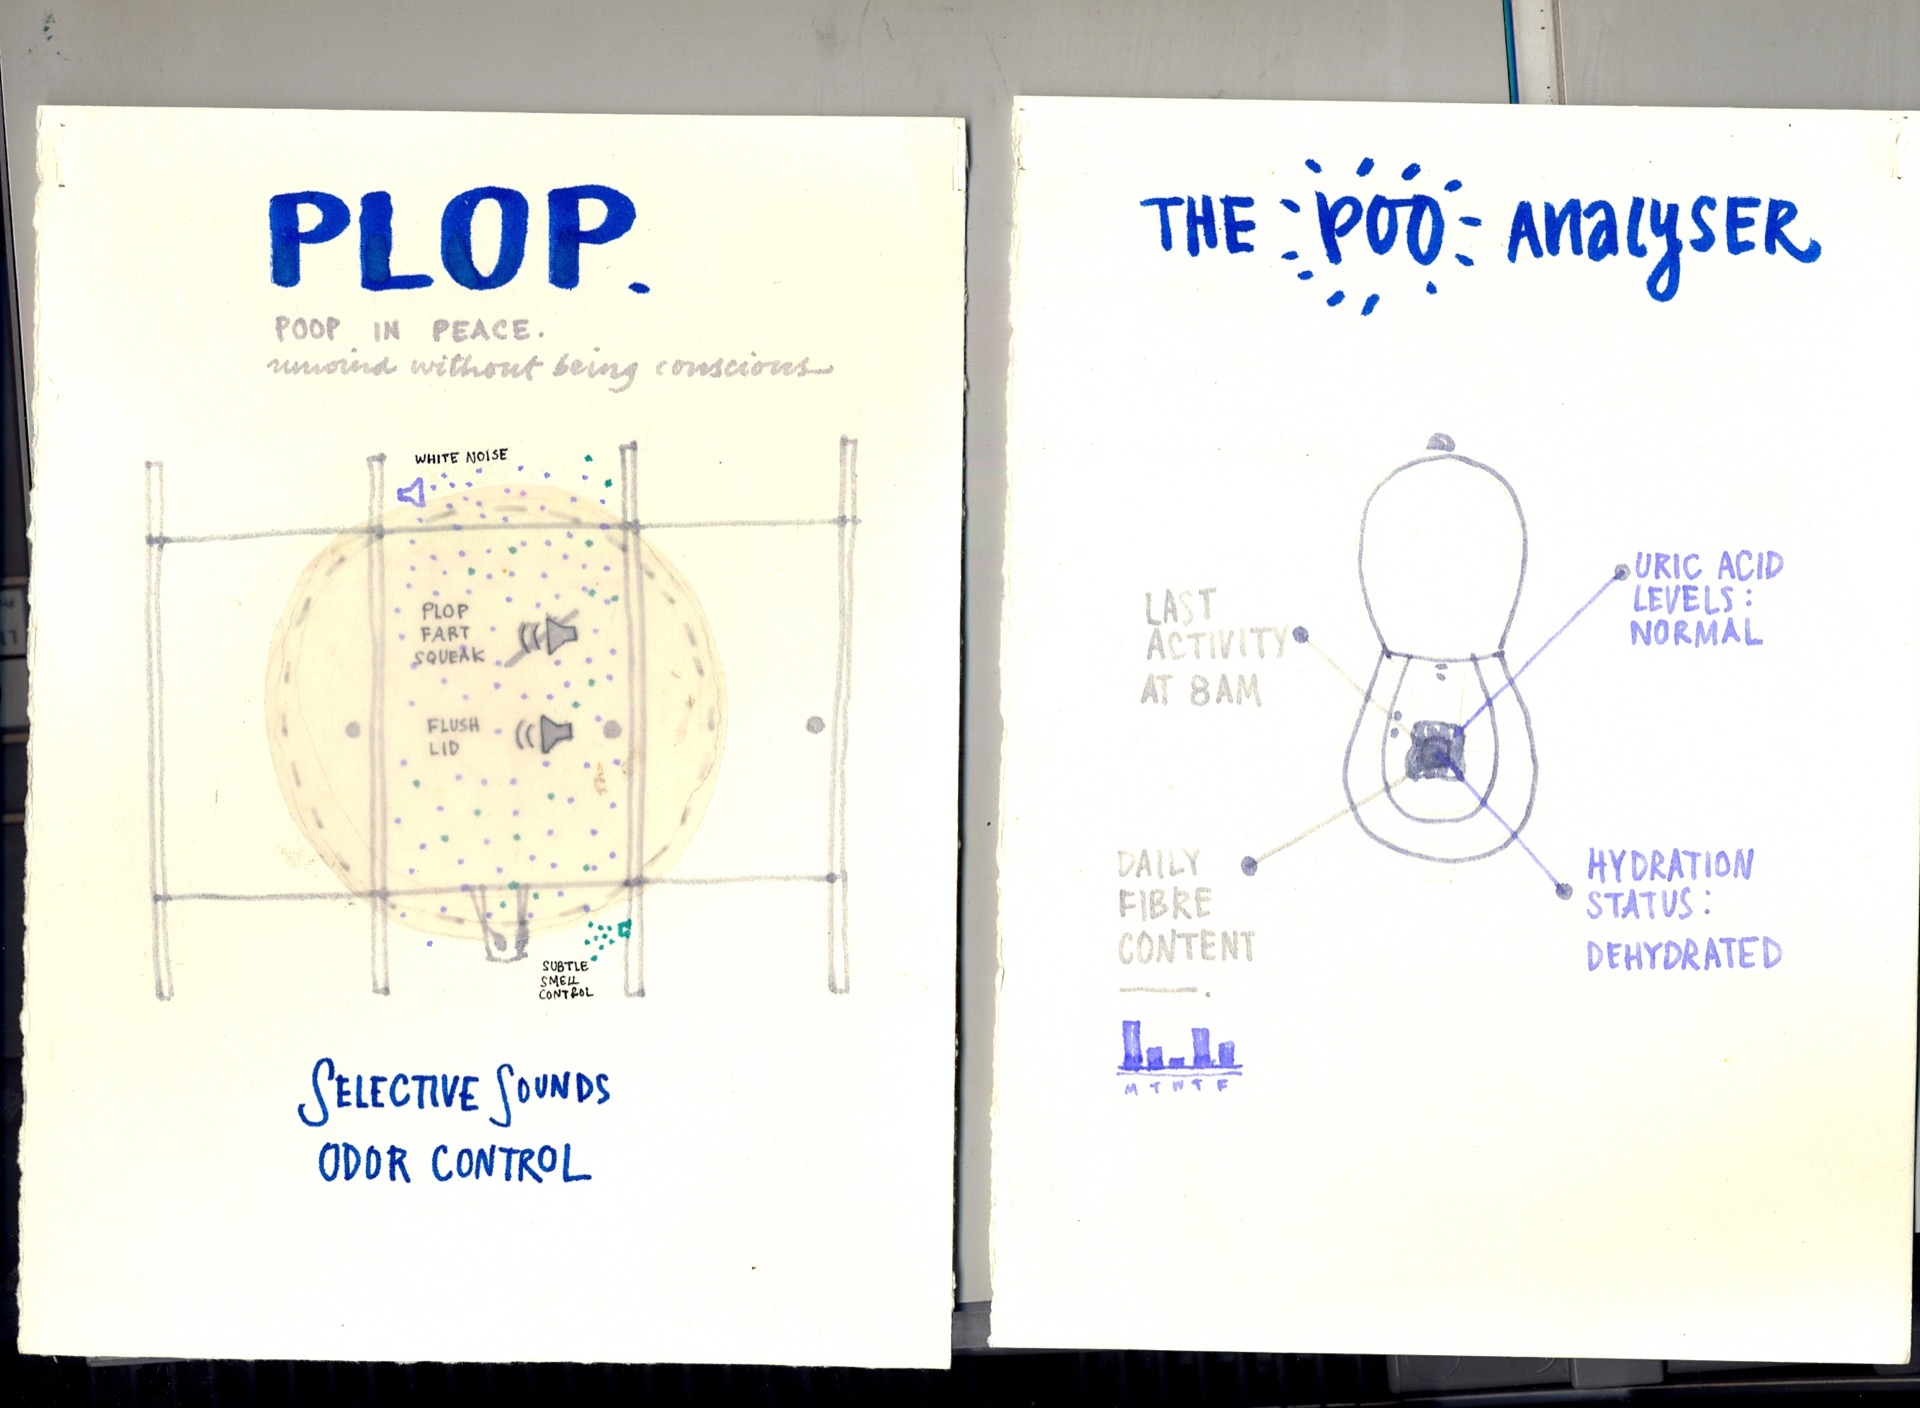 PLOP.
POOP IN PEACE.
unwind without being conscious
WHITE NOISE
PLOP
FART
SQUEAK
FLUSH
LID
SUBTLE
SMELL
CONTROL
SELECTIVE SOUNDS
ODOR CONTROL
THE POO ANALYSER
LAST
ACTIVITY
AT 8AM
URIC ACID
LEVELS:
NORMAL
DAILY
FIBRE
CONTENT
M T W T F
HYDRATION
STATUS:
DEHYDRATED